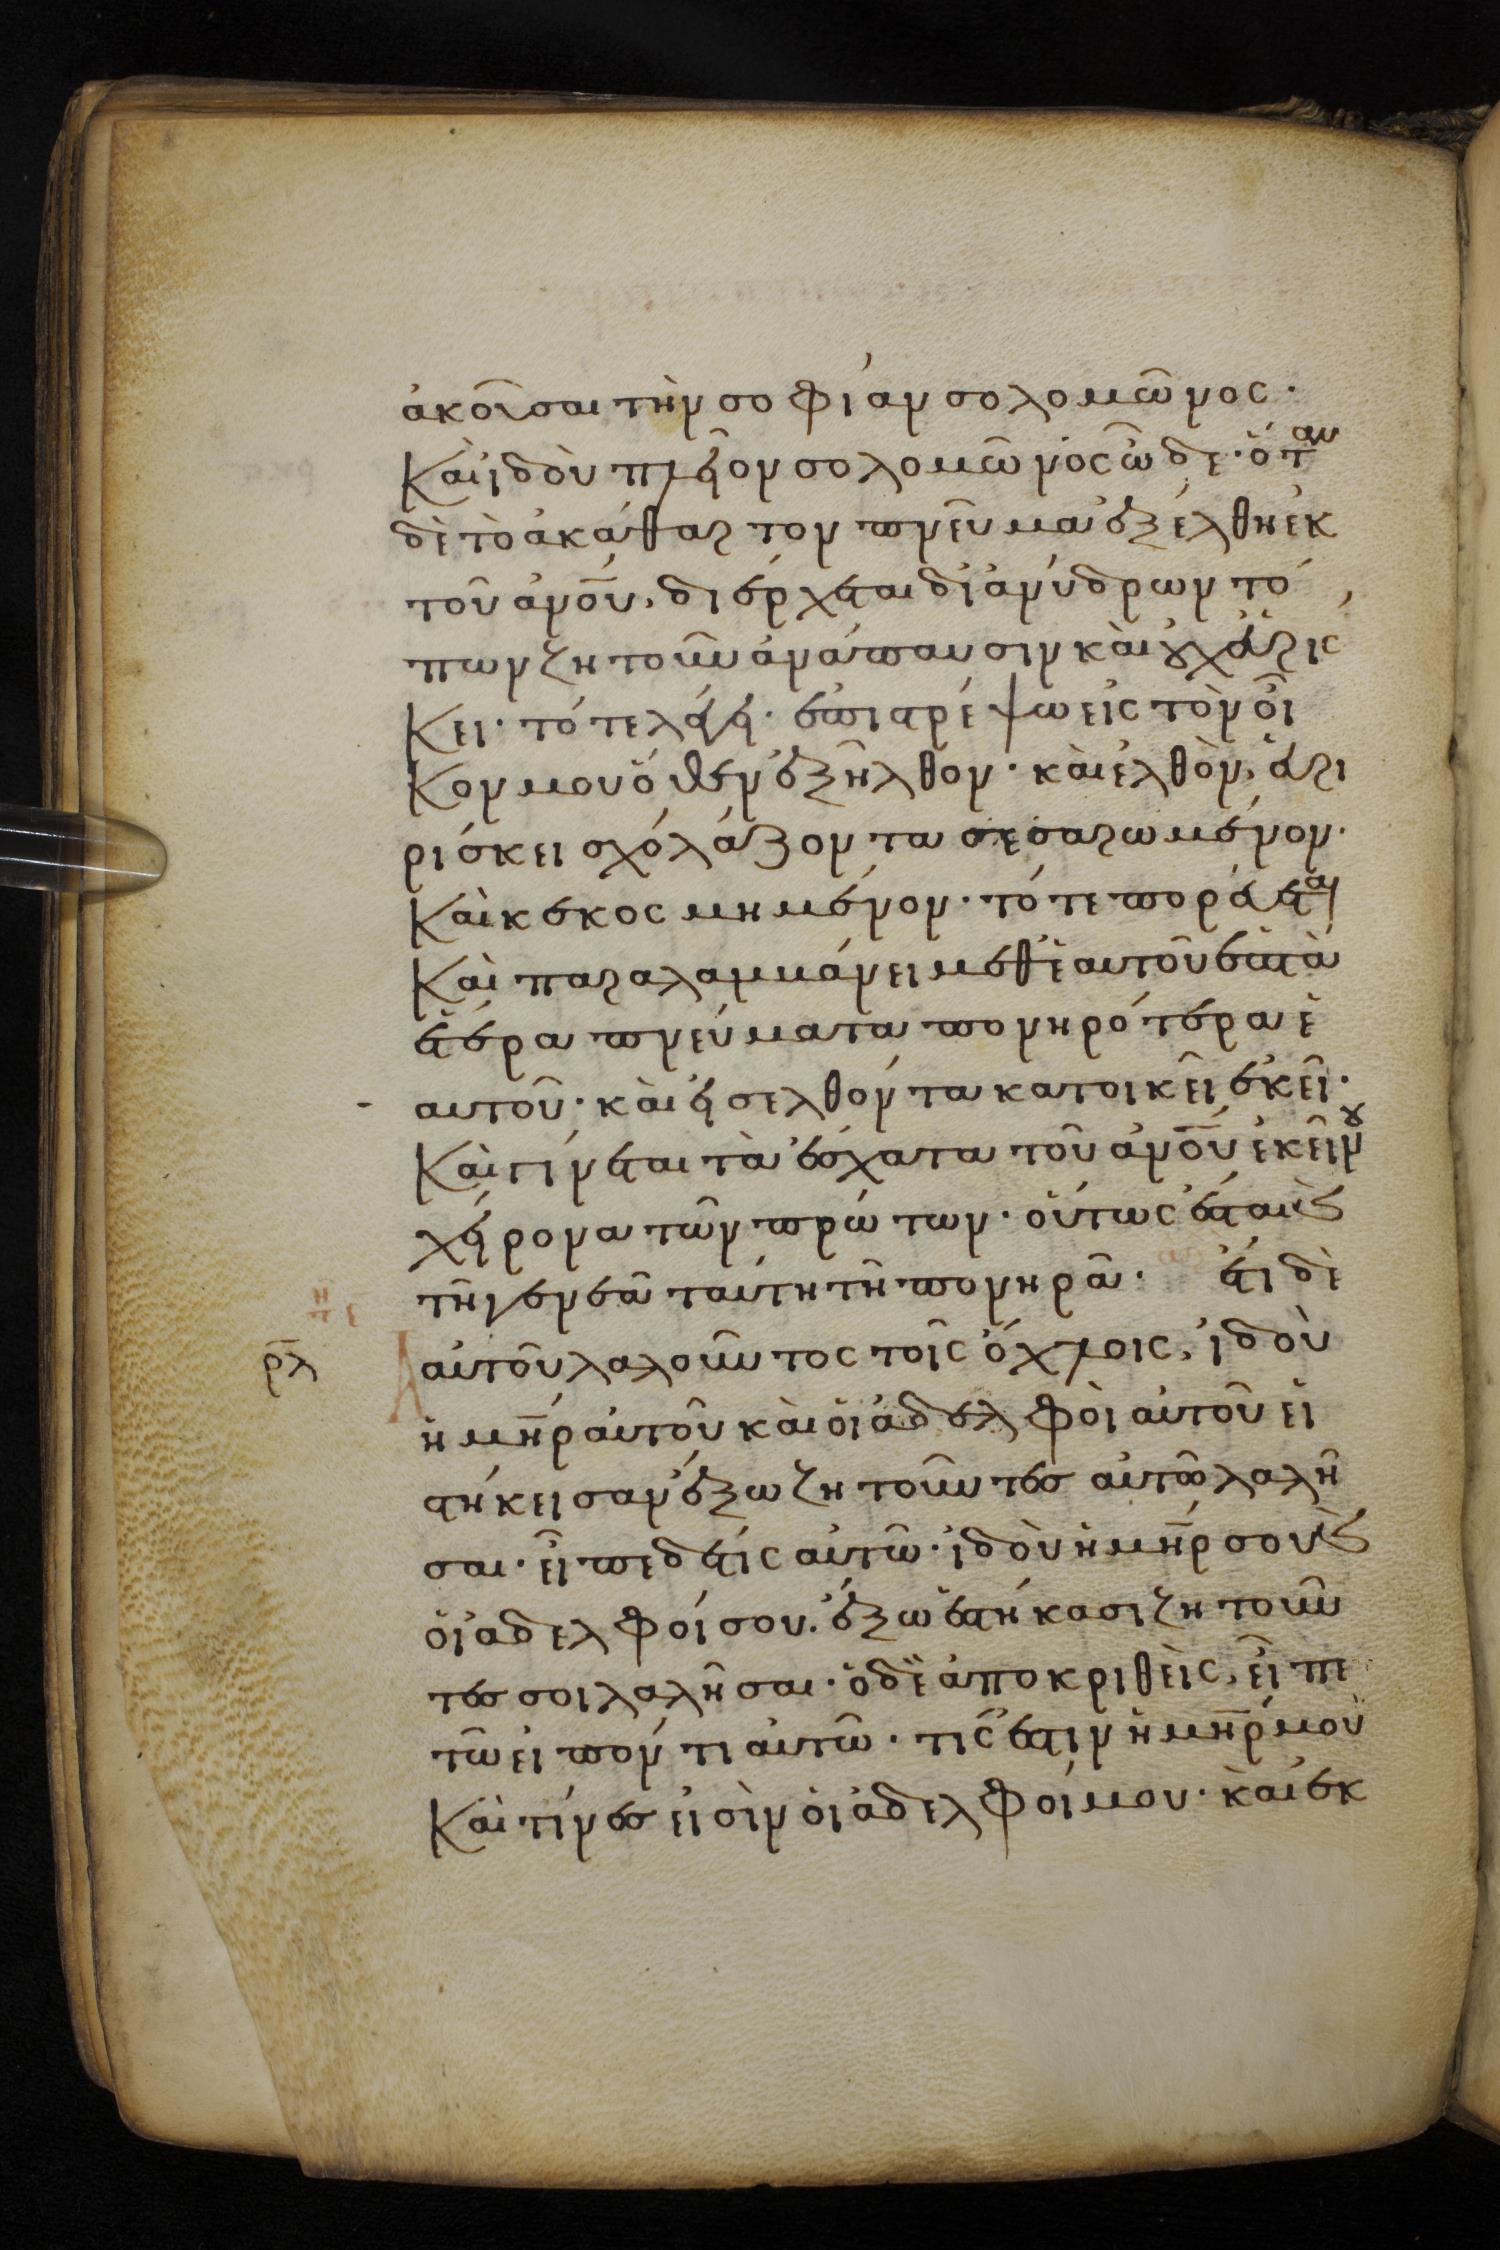 ἀκοῦσαι τὴν σοφίαν σολομῶνος·
Καὶ ἰδοὺ πλεῖον σολομῶνὸς ὧδε· ὅταν
δὲ τὸ ἀκάθαρτον πνεῦμα ἐξέλθη ἐκ
τοῦ ἀνο̅υ, διέρχεται δι ἀνύδρων τό
πων ζητοῦν ἀνάπαυσιν καὶ οὐχ εὑρίσ
Κει· τότε λέγει· ἐπιστρέψω εἰς τὸν οἶ
Κον μου ὅθεν ἐξῆλθον· καὶ ἐλθὸν, εὑ
ρίσκει σχολάζοντα σεσαρωμένον·
Καὶ κεκοσμημένον· τότε πορεύεται
Καὶ παραλαμβάνει μεθ ἑαυτοῦ ἑπτὰ
ἕτερα πνεύματα πονηρότερα ἑ
αυτοῦ· καὶ εἰσελθόντα κατοικεῖ ἐκεῖ·
Καὶ γίνεται τὰ ἔσχατα τοῦ ἀνο̅υ ἐκείνου
χείρονα τῶν πρώτων· οὕτως ἔσται καὶ
τῆ γενεᾶ ταύτη τῆ πονηρᾶ· ἔτι δὲ
ρλ αὐτοῦ λαλοῦντος τοῖς ὄχλοις, ἰδοὺ
ἡ μη̅ρ αὐτοῦ καὶ οἱ ἀδελφοὶ αὐτοῦ εἱ
στήκεισαν ἔξω ζητοῦντες αὐτῶ λαλῆ
σαι· εἶπε δέ τις αὐτῶ· ἰδοὺ ἡ μη̅ρ σου καὶ
οἱ ἀδελφοί σου· ἔξω ἑστήκασι ζητοῦν
τές σοι λαλῆσαι· ὁ δὲ ἀποκριθεὶς, εἶπε
τῶ εἰπόντι αὐτῶ· τίς ἐστιν ἡ μη̅ρ μου
Καὶ τίνες εἰσὶν οἱ ἀδελφοί μου· καὶ ἐκ